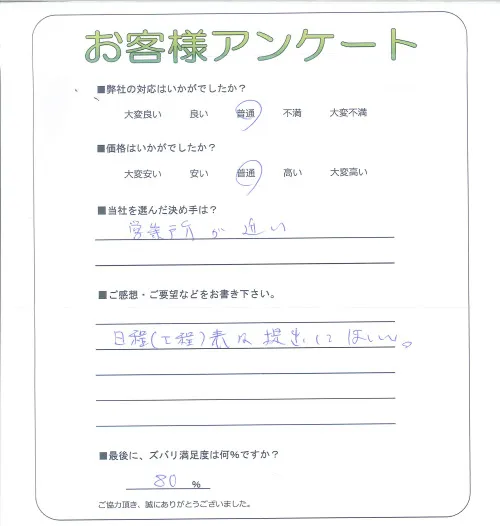 お客様アンケート
■弊社の対応はいかがでしたか？
大変良い 良い 普通 不満 大変不満
■価格はいかがでしたか？
大変安い 安い 普通 高い 大変高い
■当社を選んだ決め手は？
営業所が近い
■ご感想・ご要望などをお書き下さい。
日程(工程)表は提出してほしい。
■最後に、ズバリ満足度は何％ですか？
80 %
ご協力頂き、誠にありがとうございました。